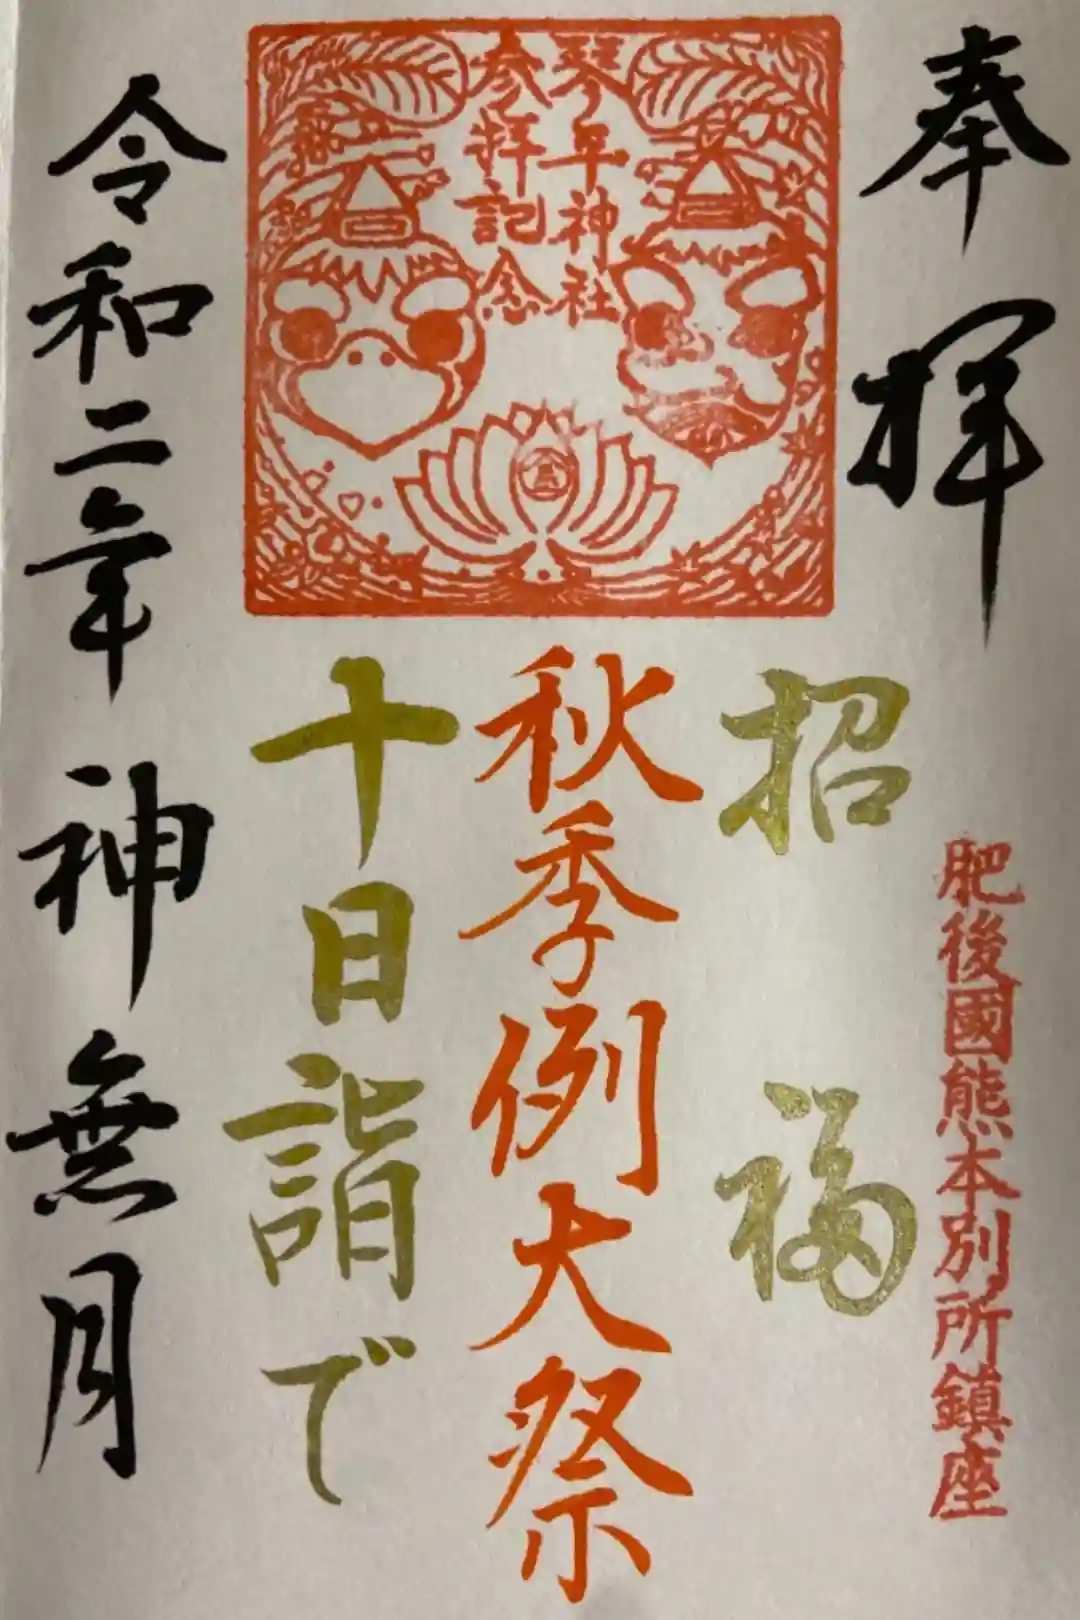 奉拝
肥後國熊本別所鎮座
招福
琴平神社
参拝記念
秋季例大祭
十日詣で
令和二年神無月